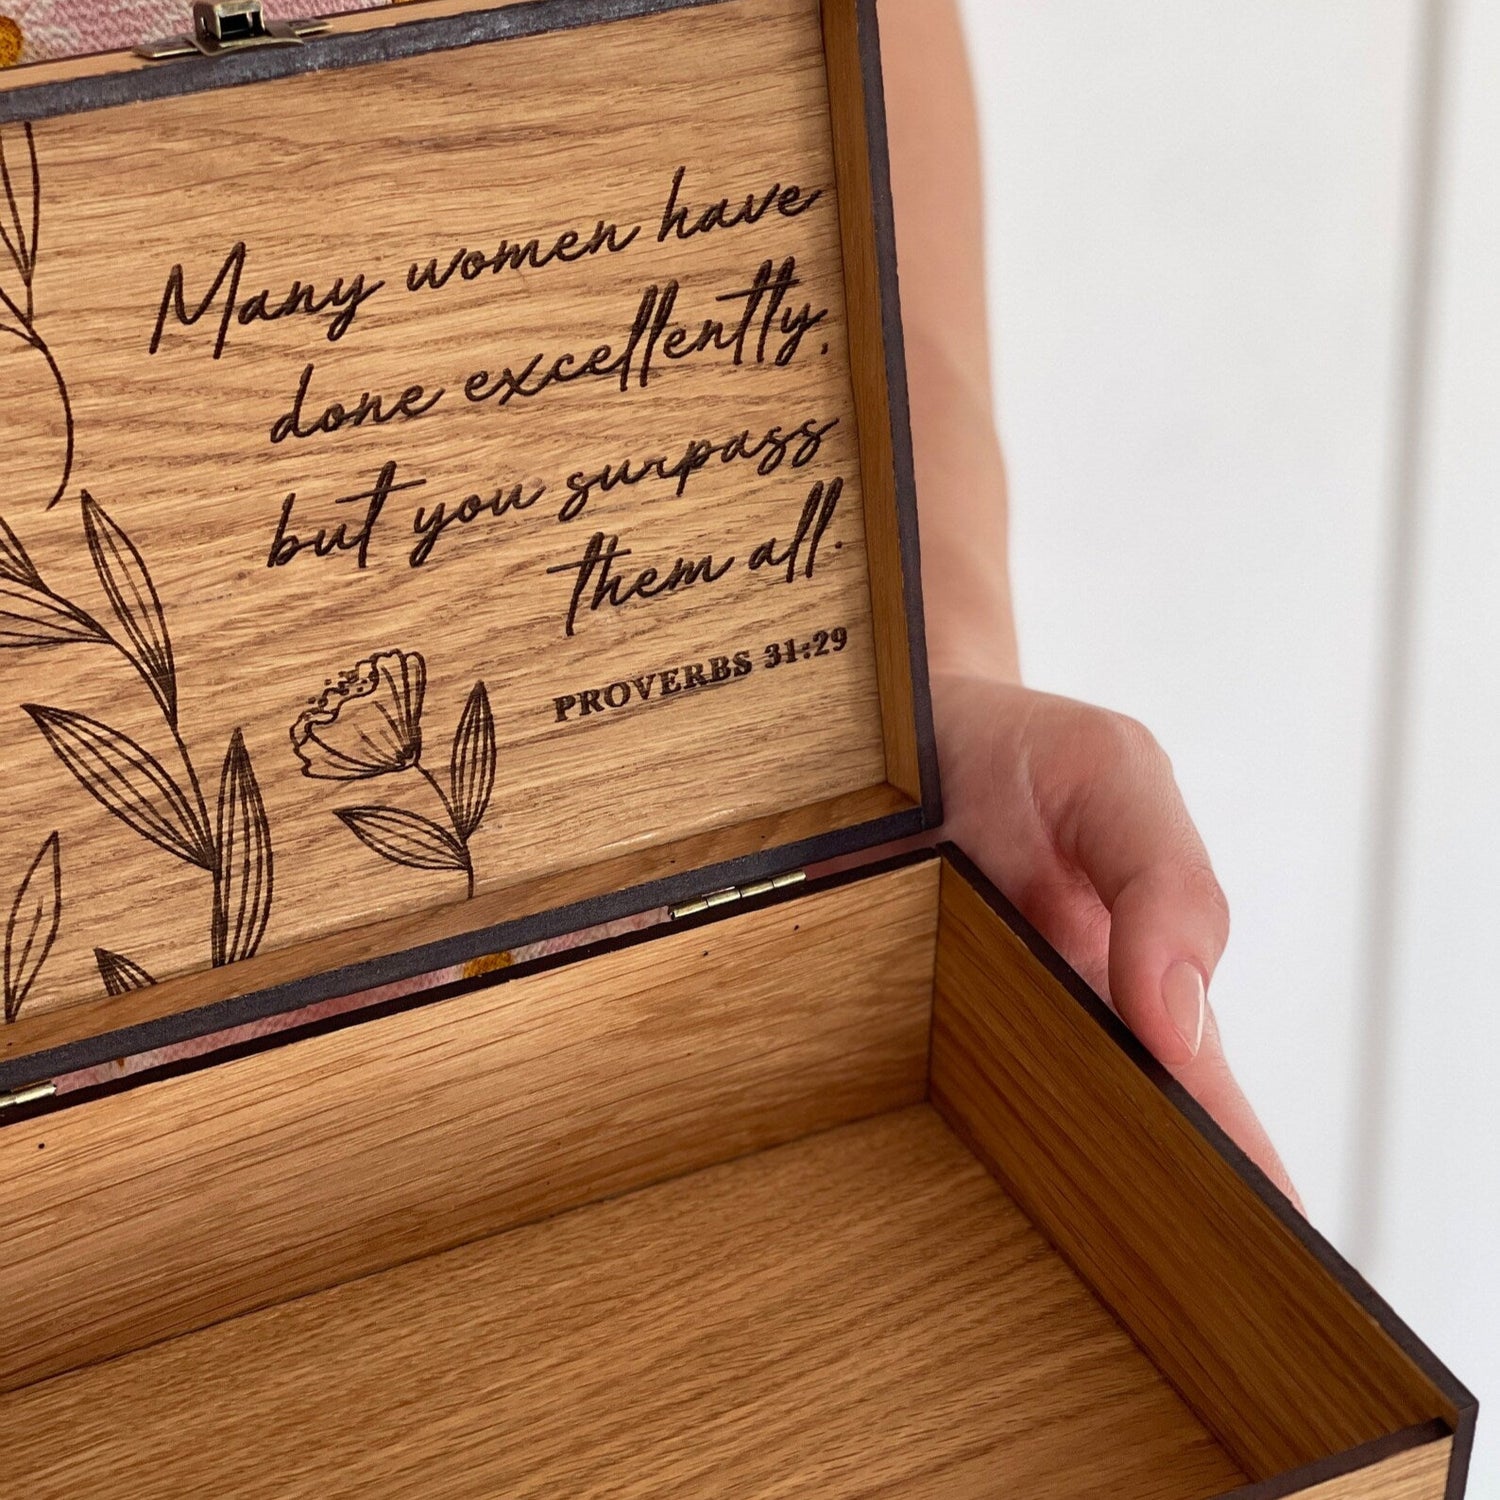 Many women have
done excellently,
but you surpass
them all.
PROVERBS 31:29